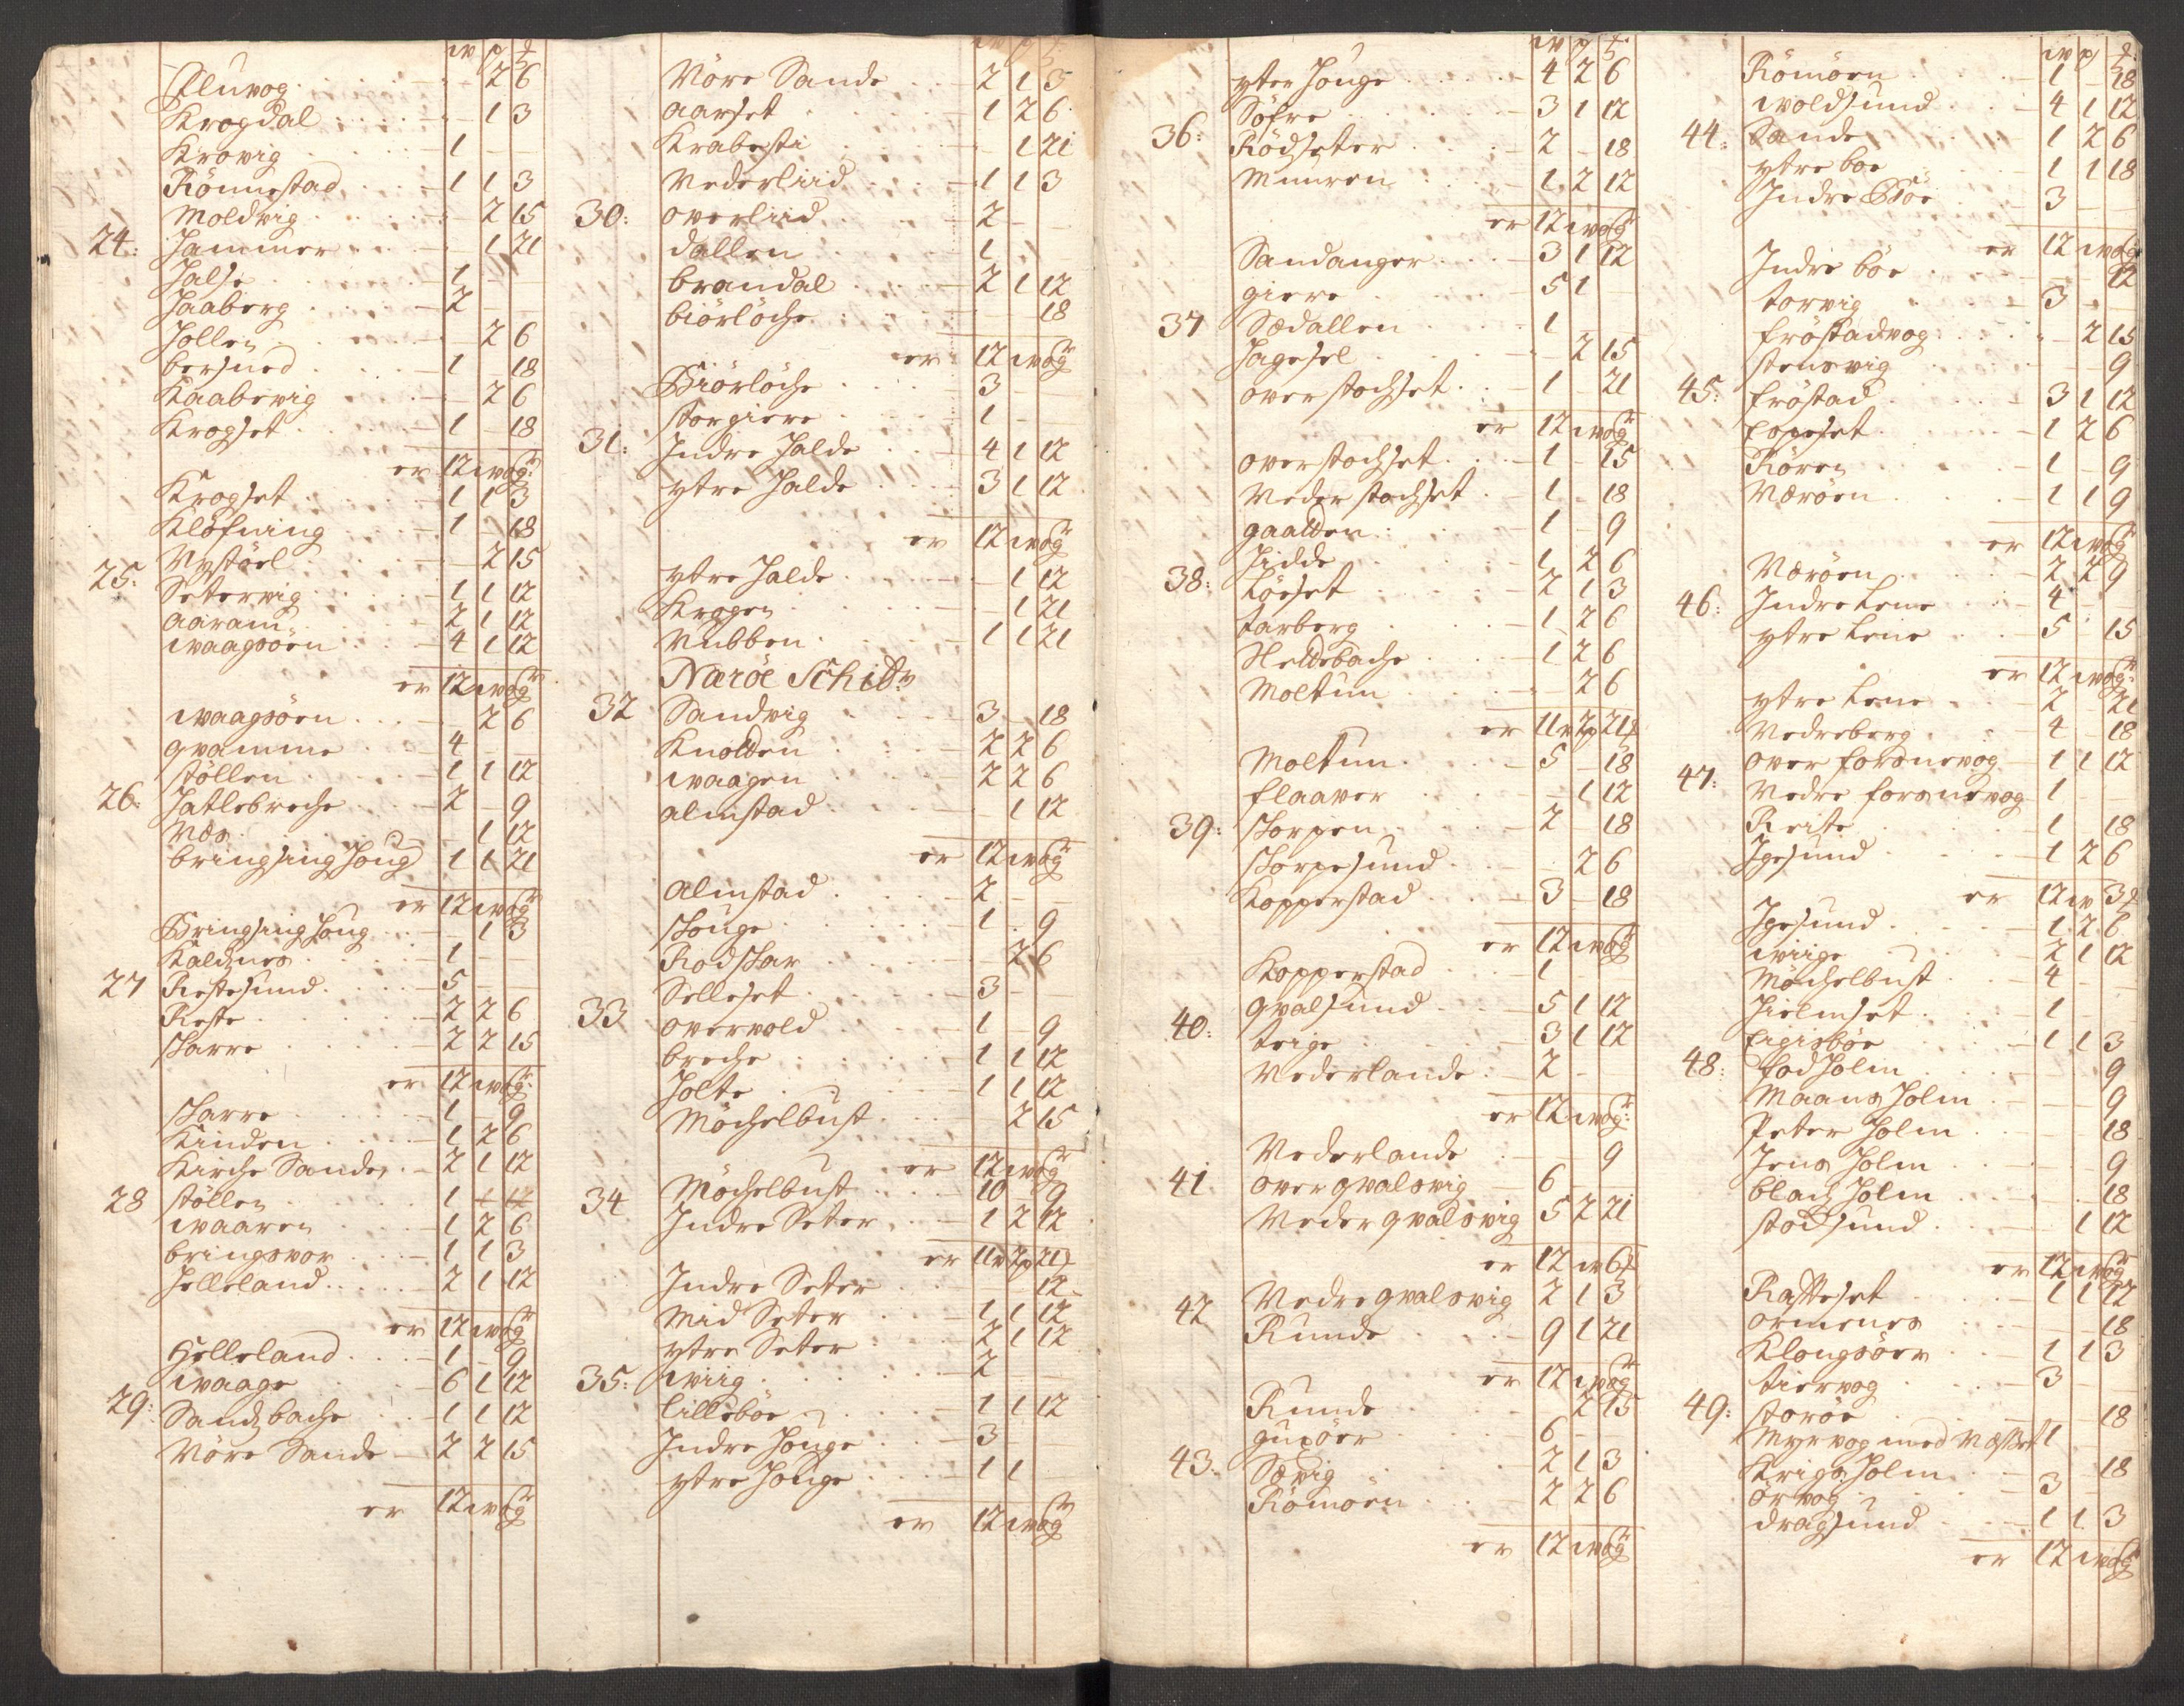 w p ₰
Fluvog 2 6
Krogdal 1 3
Krovig 1
Rönnestad 1 1 3
Moldvig 2 15
24: Hammer 1 21
Halse 1
Haaberg 2
Hollen 2 6
bersued 1 – 18
Kaabevig 2 6
Krogset 1 – 18
er 12 wog
Krogset 1 1 3
Klöfning 1 – 18
Nystöel 2 15
25: Setervig 1 1 12
aaram 2 1 12
waagsöen 4 1 12
er 12 wog
waagsöen 2 6
gvamme 4
stöllen 1 1 12
26: Hatlebreche 2 – 9
Næs 1 12
bringsinghoug 1 1 21
er 12 wog
Bringsinghoug 1 3
Kaldnes 1
27 Røstesund 5
Røste 2 2 6
skarre 2 2 15
er 12 wog
skarre 1 – 9
Kinden 1 2 6
Kirche Sande 2 1 12
28 stöllen 1
waaren 1 2 6
bringsvor 1 1 3
Helleland 2 1 12
er 12 wog
Helleland 1 – 9
waage 6 1 12
29: Sandbache 1 1 12
Vöre Sande 2 2 15
er 12 wog
w p ₰
Vöre Sande 2 1 3
aarset 1 2 6
Krabesti 1 21
Nederliid 1 1 3
30: overliid 2
dallen 1
brandal 2 1 12
biörlöche 18
er 12 wog
Biörlöche 3
storgiere 1
31: Indre Halde 4 1 12
ytre Halde 3 1 12
er 12 wog
ytre Halde 1 12
Kragen 1 21
Nubben 1 1 21
Næröe Schibr
32 Sandvig 3 – 18
Knolden 2 2 6
waagen 2 2 6
almstad 1 12
er 12 wog
Almstad 2
skouge 1 – 9
Rodskar 2 6
Selleset 3
33 overvold 1 – 9
breche 1 1 12
Holte 1 1 12
Möchelbust 2 15
er 12 wog
34 Möchelbust 10 – 9
Indre Seter 1 2 12
er 11 w 2 p 21 ₰
Indre Seter 12
Mid Seter 1 1 12
ytre Seter 2 1 12
35: wiig 2
lilleböe 1 1 12
Indre Houge 3
ytre Houge 1 1
er 12 wog
w p ₰
ytter Houge 4 2 6
Söfre 3 1 12
36: Rödseter 2 – 18
Muuren 1 2 12
er 12 wog
Sandanger 3 1 12
giere 5 1
37 Sædallen 1
Hagesel 2 15
overstochset 1 – 21
er 12 wog
overstochset 1 – 15
Nederstochset 1 – 18
gaalden 1 – 9
Hidde 1 2 6
38: Löeset 2 1 3
tarberg 1 2 6
Heldebache 1 2 6
Moltun 2 6
er 11 w 2 p 21 ₰
Moltun 5 – 18
flaaver 1 12
39: skorpen 2 – 18
skorpesund 2 6
Kopperstad 3 – 18
er 12 wog
Kopperstad 1
gvalsund 5 1 12
40: teige 3 1 12
Nederlande 2
er 12 wog
Nederlande 9
41 over gvalsvig 6
Neder gvalsvig 5 2 21
er 12 w 6 ₰
42 Nedre gvalsvig 2 1 3
Runde 9 1 21
er 12 wog
Runde 2 15
guxöer 6
43: Sævig 2 1 3
Römöen 2 2 6
er 12 wog
w p ₰
Römöen 1 – 18
woldsund 4 1 12
44: Sande 1 2 6
ytre böe 1 1 18
Indre Böe 3
er 12 wog
Indre böe 12
torvig 3
fröstadvog 2 15
stensvig 9
45: fröstad 3 1 12
Copeset 1 2 6
Rören 1 – 9
Næröen 1 1 9
er 12 wog
Næröen 2 2 9
46: Indre Leine 4
ytre Leine 5 – 15
er 12 wog
ytre Leine 2 – 21
Nedreberg 4 – 18
over forsnevog 1 1 12
47: Nedre forsnevog 1
Reite 1 – 18
Igesund 1 2 6
er 12 w 3 ₰
Igesund 1 2 6
wiige 2 1 12
Möchelbust 4
Hielmset 1
Eigisböe 1 1 3
48: fodholm 9
Maansholm 9
Peter Holm 18
Jens Holm 9
blachholm 18
stochsund 1 12
er 12 wog
Rafteset 1 1 12
ormenes 18
Klongsöer 1 1 3
tiervog 3
49: storöe 18
Myrvog med Næsset 1
Krigsholm 18
örvog 3
dragsund 1 1 3
er 12 wog